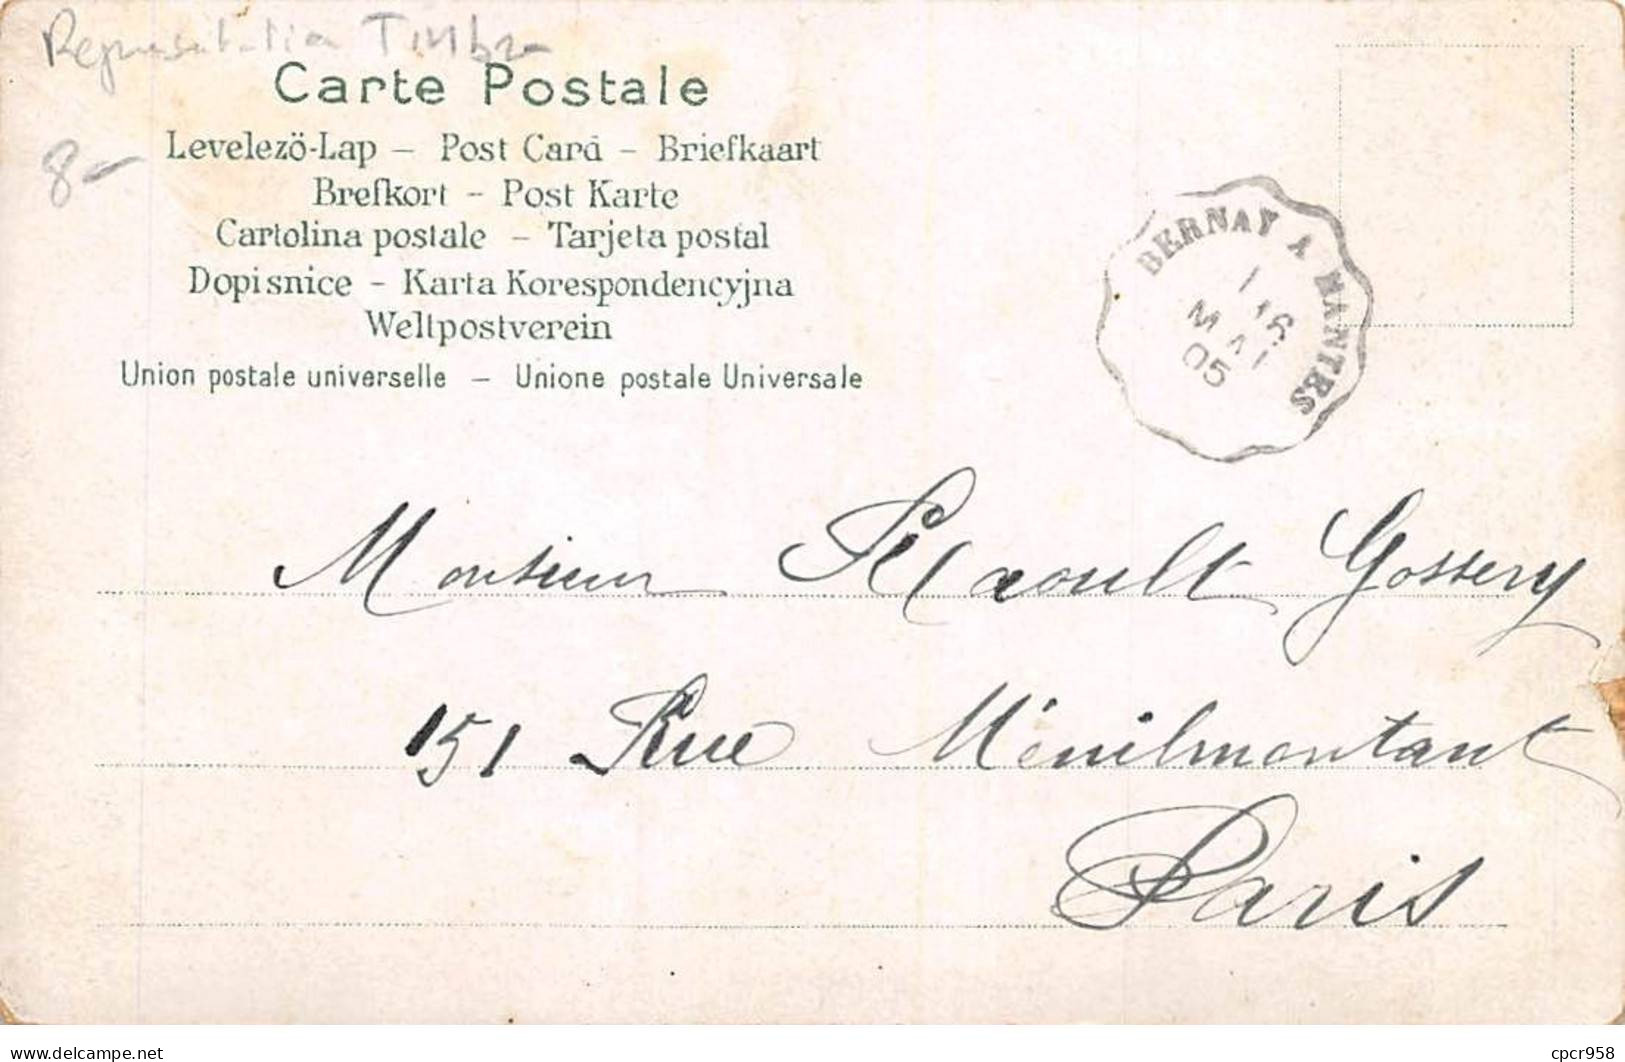 Representation Timbre
Carte Postale
8-
Levelezö-Lap – Post Card – Briefkaart
Brefkort – Post Karte
Cartolina postale – Tarjeta postal
Dopisnice – Karta Korespondencyjna
Weltpostverein
Union postale universelle – Unione postale Universale
BERNAY A MANTES
1
16
MAI
05
Monsieur Raoult Gossery
151 Rue Ménilmontant
Paris
www.delcampe.net
cpcr958